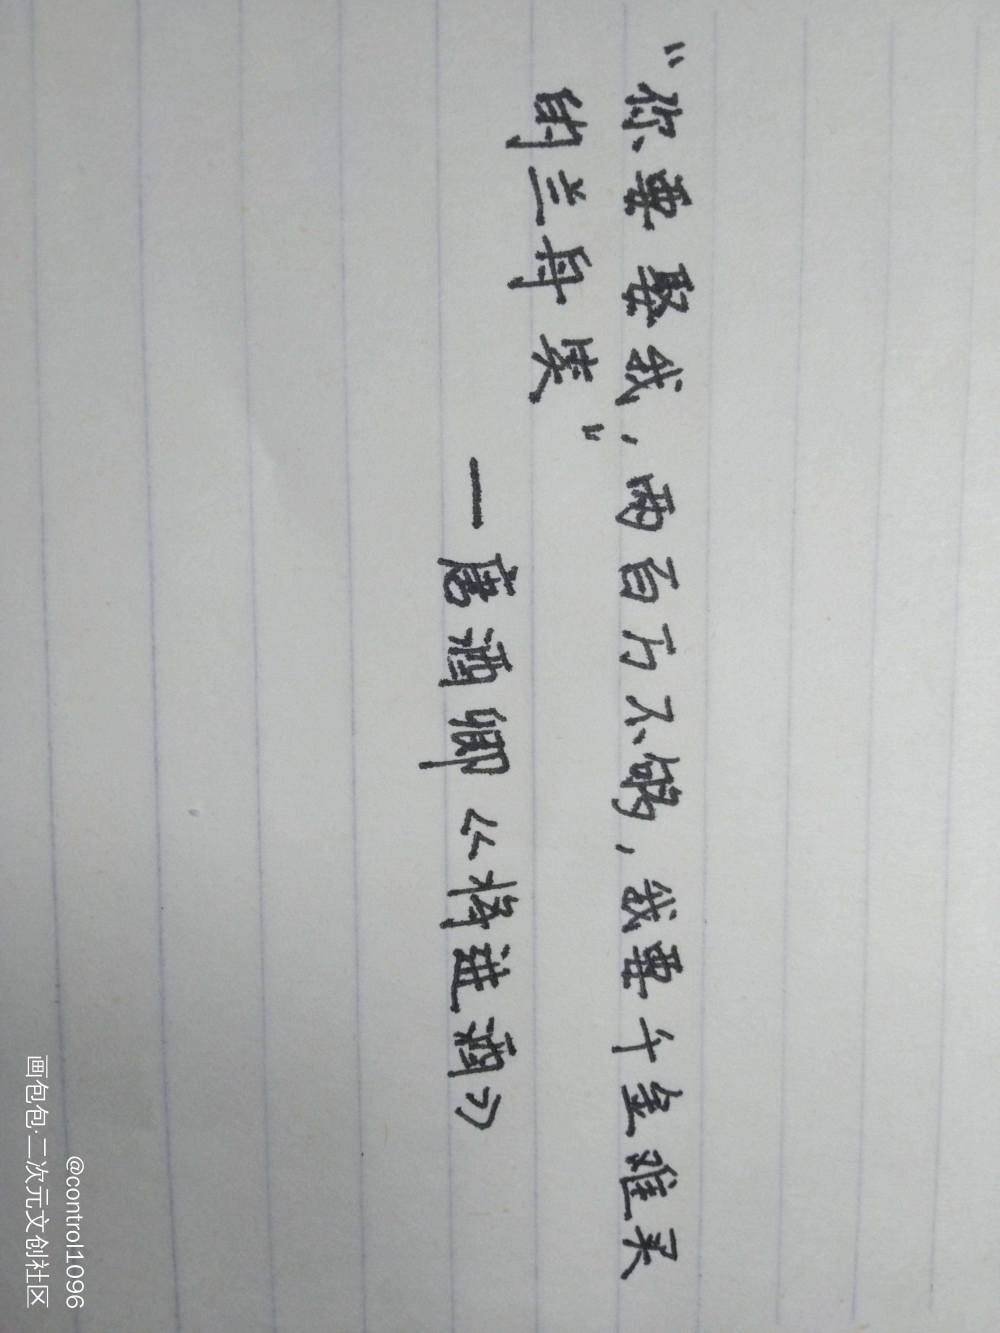 “你要娶我，两百万不够，我要千金难买
的兰舟笑”
—唐酒卿《将进酒》
@control1096
画包包·二次元文创社区